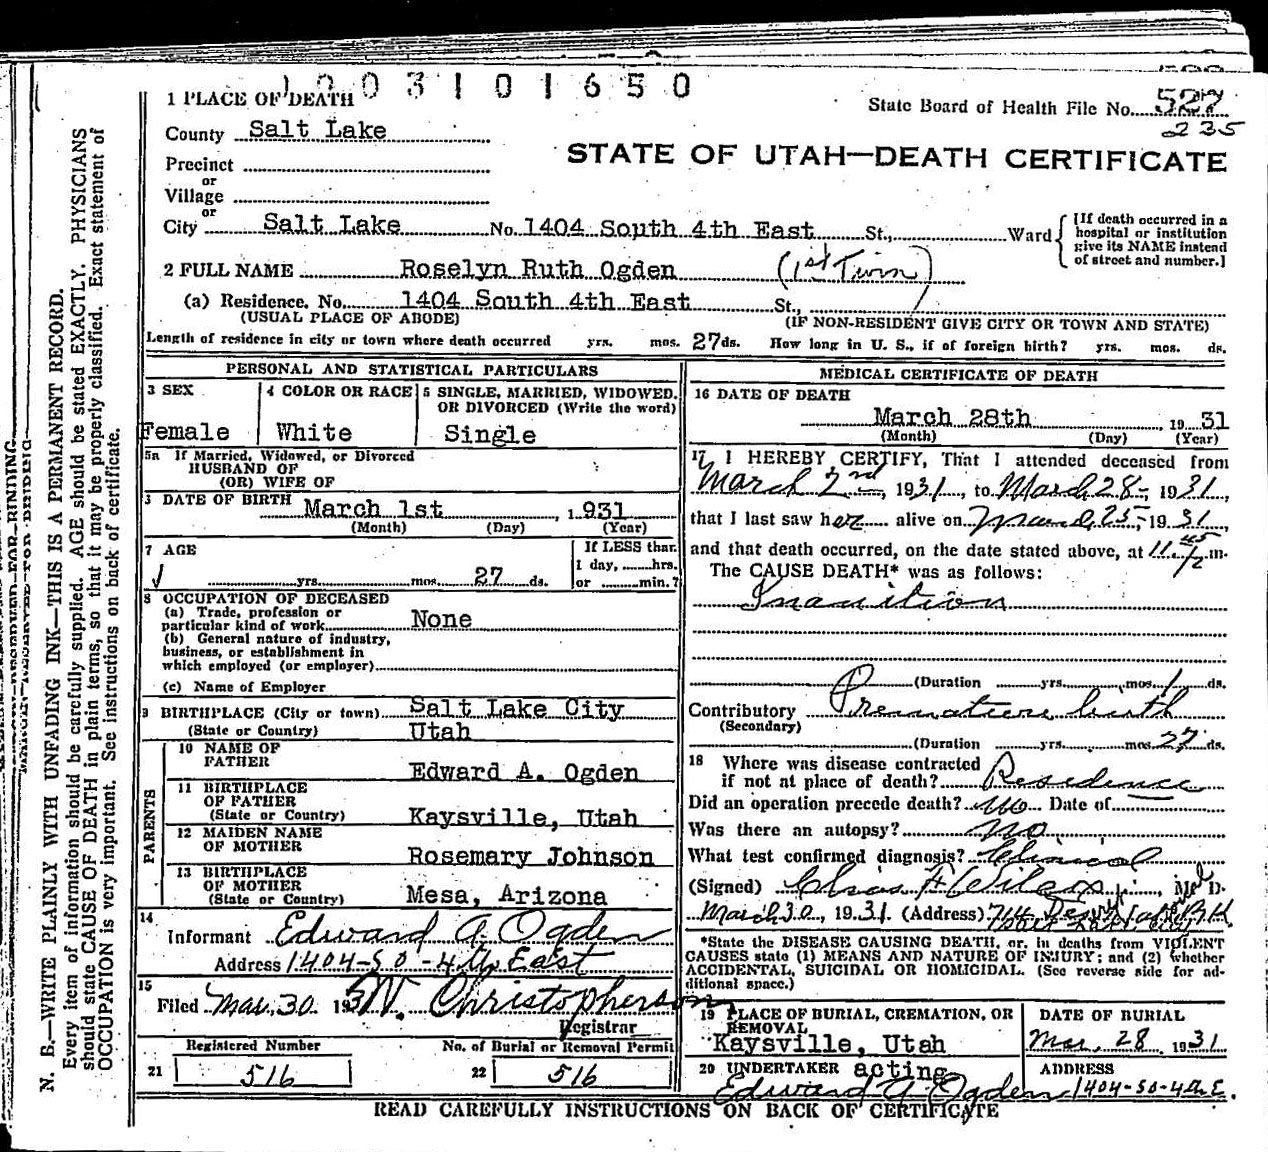 1003101650
1 PLACE OF DEATH
State Board of Health File No. 527
235
County Salt Lake
STATE OF UTAH—DEATH CERTIFICATE
Precinct
or
Village
or
City Salt Lake No. 1404 South 4th East St., Ward
[If death occurred in a hospital or institution give its NAME instead of street and number.]
2 FULL NAME Roselyn Ruth Ogden (1st Twin)
(a) Residence. No. 1404 South 4th East St.,
(USUAL PLACE OF ABODE) (IF NON-RESIDENT GIVE CITY OR TOWN AND STATE)
Length of residence in city or town where death occurred yrs. mos. 27 ds. How long in U. S., if of foreign birth? yrs. mos. ds.
PERSONAL AND STATISTICAL PARTICULARS
3 SEX 4 COLOR OR RACE 5 SINGLE, MARRIED, WIDOWED,
OR DIVORCED (Write the word)
Female White Single
5a If Married, Widowed, or Divorced
HUSBAND OF
(OR) WIFE OF
DATE OF BIRTH March 1st, 1931
(Month) (Day) (Year)
7 AGE
yrs. mos. 27 ds.
If LESS than
1 day, hrs.
or min.?
8 OCCUPATION OF DECEASED
(a) Trade, profession or
particular kind of work None
(b) General nature of industry,
business, or establishment in
which employed (or employer)
(c) Name of Employer
9 BIRTHPLACE (City or town) Salt Lake City
(State or Country) Utah
PARENTS
10 NAME OF
FATHER Edward A. Ogden
11 BIRTHPLACE
OF FATHER
(State or Country) Kaysville, Utah
12 MAIDEN NAME
OF MOTHER Rosemary Johnson
13 BIRTHPLACE
OF MOTHER
(State or Country) Mesa, Arizona
14
Informant Edward A. Ogden
Address 1404-SO-4th East
15
Filed Mar. 30 193 W. Christopherson
Registrar
Registered Number No. of Burial or Removal Permit
21 516 22 516
MEDICAL CERTIFICATE OF DEATH
16 DATE OF DEATH
March 28th 1931
(Month) (Day) (Year)
17 I HEREBY CERTIFY, That I attended deceased from
March 2nd, 1931, to March 28, 1931,
that I last saw her alive on March 25, 1931,
and that death occurred, on the date stated above, at 11.45 m.
The CAUSE DEATH* was as follows:
Inanition
(Duration yrs. mos. 1 ds.
Contributory Premature birth
(Secondary)
(Duration yrs. mos. 27 ds.
18 Where was disease contracted
if not at place of death? Residence
Did an operation precede death? no Date of
Was there an autopsy? no
What test confirmed diagnosis? Clinical
(Signed) Chas F Wilcox, M. D.
March 30, 1931. (Address)
*State the DISEASE CAUSING DEATH, or, in deaths from VIOLENT
CAUSES state (1) MEANS AND NATURE OF INJURY; and (2) whether
ACCIDENTAL, SUICIDAL OR HOMICIDAL. (See reverse side for ad-
ditional space.)
19 PLACE OF BURIAL, CREMATION, OR
REMOVAL
Kaysville, Utah
DATE OF BURIAL
Mar. 28 1931
20 UNDERTAKER acting
Edward A. Ogden
ADDRESS
1404-SO-4th E.
READ CAREFULLY INSTRUCTIONS ON BACK OF CERTIFICATE
N. B.—WRITE PLAINLY WITH UNFADING INK—THIS IS A PERMANENT RECORD.
Every item of information should be carefully supplied. AGE should be stated EXACTLY. PHYSICIANS
should state CAUSE OF DEATH in plain terms, so that it may be properly classified. Exact statement of
OCCUPATION is very important. See instructions on back of certificate.